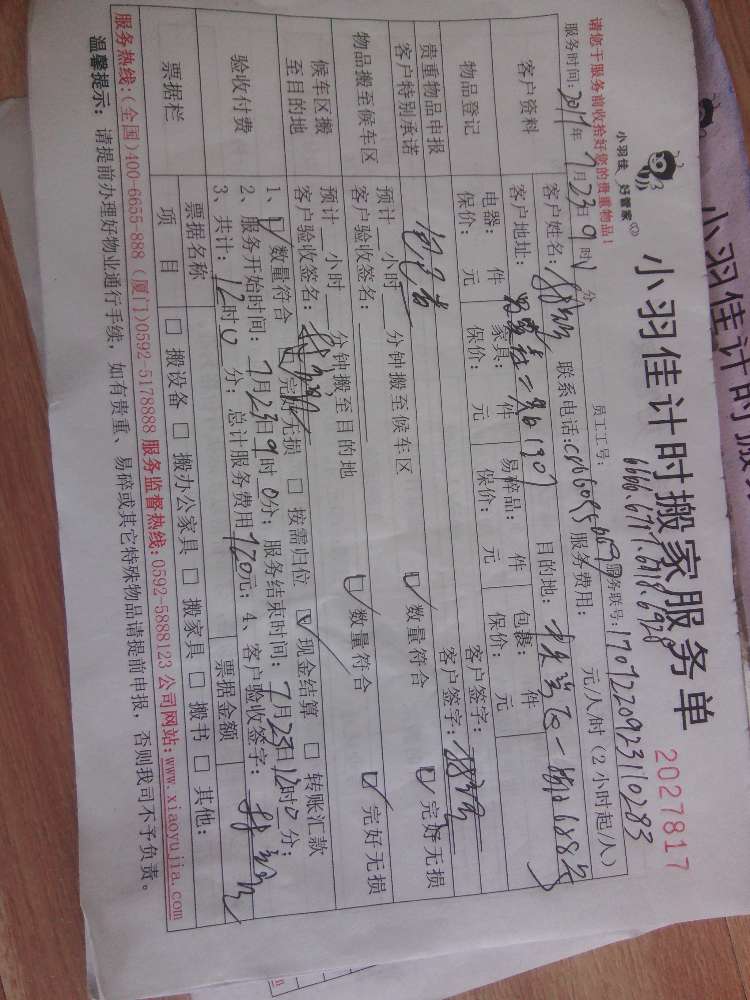 小羽佳计时搬
小羽佳 好管家
小羽佳计时搬家服务单
2027817
请您于服务前收拾好您的贵重物品！
员工工号：
服务时间：2017年7月23日9时 分
服务联号：1707220923110283
客户资料
客户姓名： 联系电话： 服务费用： 元/人/时（2小时起/人）
客户地址： 目的地：
物品登记
电器： 件 家具： 件 易碎品： 件 包裹： 件
保价： 元 保价： 元 保价： 元 保价： 元
贵重物品申报
客户特别承诺
客户签字：
客户签字：
物品搬至候车区
预计 小时 分钟搬至候车区 数量符合 完好无损
客户验收签名：
候车区搬至目的地
预计 小时 分钟搬至目的地 数量符合 完好无损
客户验收签名：
验收付费
1、 数量符合 完好无损 □ 按需归位 现金结算 □ 转账汇款
2、服务开始时间：7月23日9时0分；服务结束时间：7月23日12时0分；
3、共计：12时0分；总计服务费用720元；4、客户验收签字：
票据栏
票据名称 票据金额
项目 □ 搬设备 □ 搬办公家具 □ 搬家具 □ 搬书 □ 其他：
服务热线：(全国)400-6655-888 (厦门)0592-5178888 服务监督热线：0592-5888123 公司网站：www.xiaoyujia.com
温馨提示：请提前办理好物业通行手续，如有贵重、易碎或其它特殊物品请提前申报，否则我司不予负责。